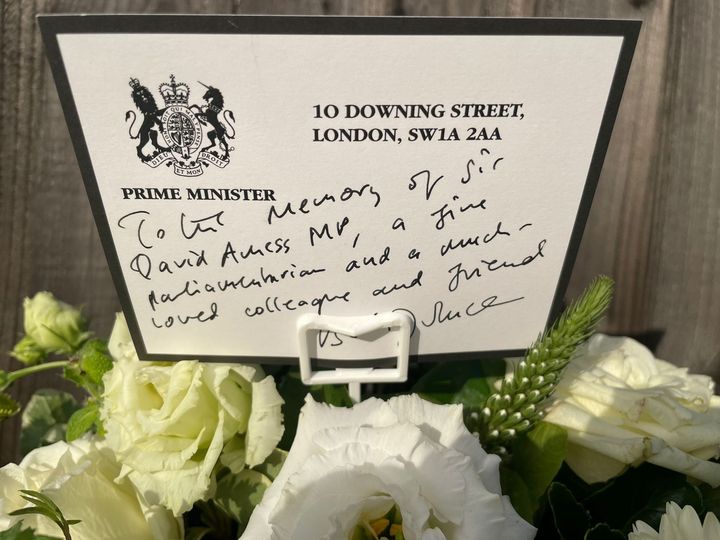 10 DOWNING STREET,
LONDON, SW1A 2AA
DIEU ET MON DROIT
PRIME MINISTER
To the memory of Sir
David Amess MP, a fine
parliamentarian and a much-
loved colleague and friend